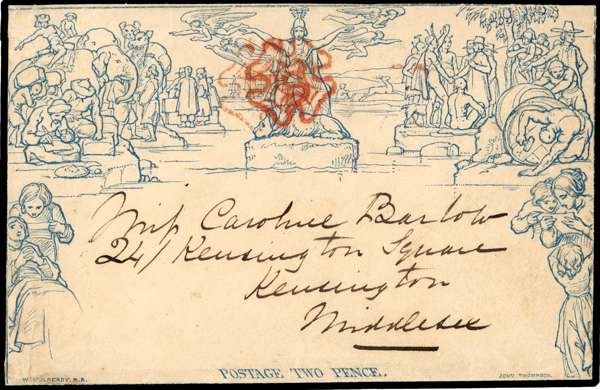 Miss Caroline Barlow
24 / Kensington Square
Kensington
Middlesex
POSTAGE TWO PENCE.
W. MULREADY. R.A.
JOHN THOMPSON.